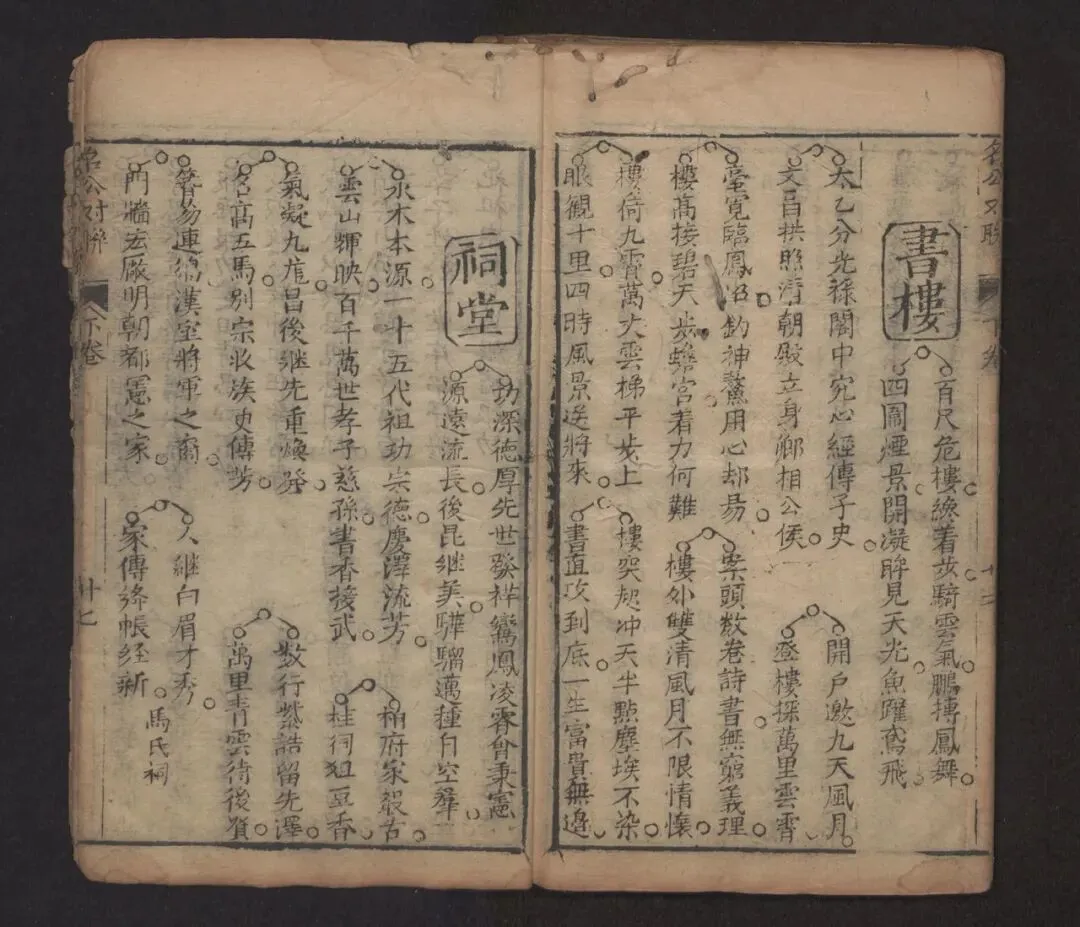 書樓
百尺危樓纔着步騎雲氣鵬摶鳳舞
四圍煙景開凝眸見天光魚躍鳶飛
太乙分光祿閣中究心經傳子史
文昌拱照清朝殿立身鄉相公侯
開戶邀九天風月
登樓採萬里雲霄
毫寬臨鳳沼釣神鰲用心却易
樓高接碧天步蟾宮着力何難
案頭数卷詩書無窮義理
樓外雙清風月不限情懷
樓倚九霄萬丈雲梯平步上
眼觀十里四時風景送將來
樓突起冲天半點塵埃不染
書直攻到底一生富貴無邊
祠堂
功深德厚先世發祥鸞鳳凌霄曾秉憲
源遠流長後昆継美驊騮邁種自空羣
水木本源一十五代祖功宗德慶澤流芳
雲山輝映百千萬世孝子慈孫書香接武
柏府家嚴古
桂祠俎豆香
氣凝九龍昌後継先重煥發
名高五馬別宗收族史傳芳
数行紫誥留先澤
萬里青雲待後賢
簪笏連綿漢室將軍之裔
門牆宏厰明朝都憲之家
人継白眉才秀
家傳絳帳経新
馬氏祠
名公对聯
下卷
廿七